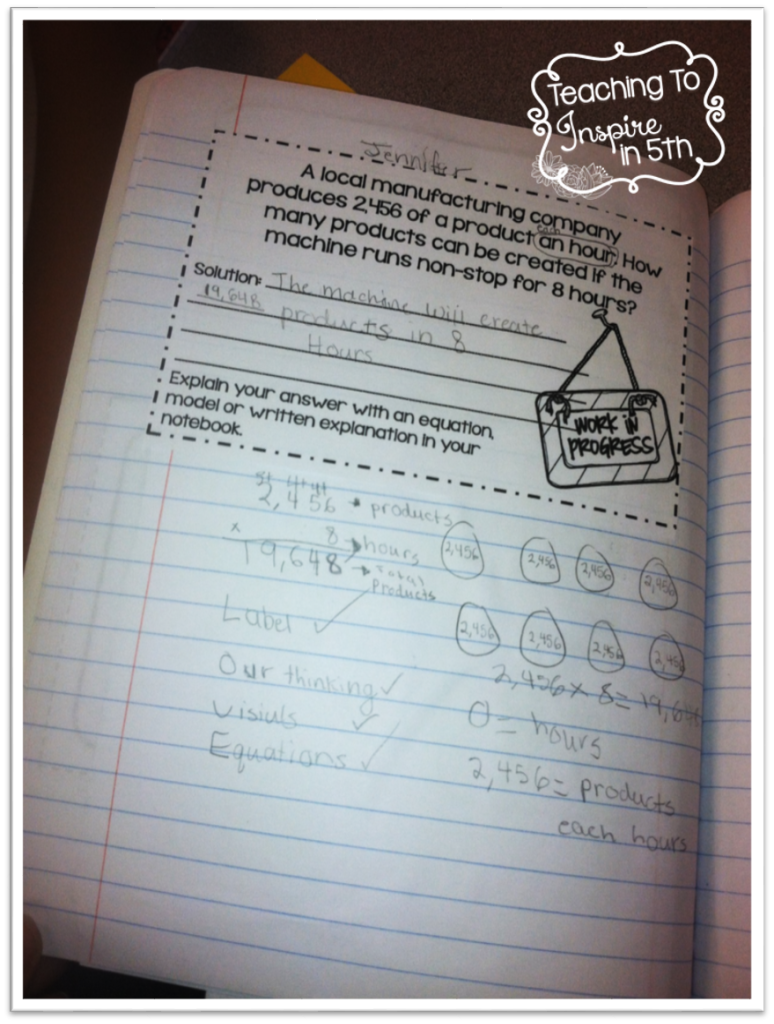 Teaching To
Inspire
in 5th
Jennifer
A local manufacturing company
produces 2,456 of a product an hour. How
each
many products can be created if the
machine runs non-stop for 8 hours?
Solution: The machine will create
19,648 products in 8
Hours
Explain your answer with an equation,
model or written explanation in your
notebook.
WORK IN
PROGRESS
2,456 → products
x 8 → hours
19,648 → Total
Products
2,456 2,456 2,456 2,456
2,456 2,456 2,456 2,456
Label ✓
Our thinking ✓
Visiuls ✓
Equations ✓
2,456 x 8 = 19,648
O = hours
2,456 = products
each hours